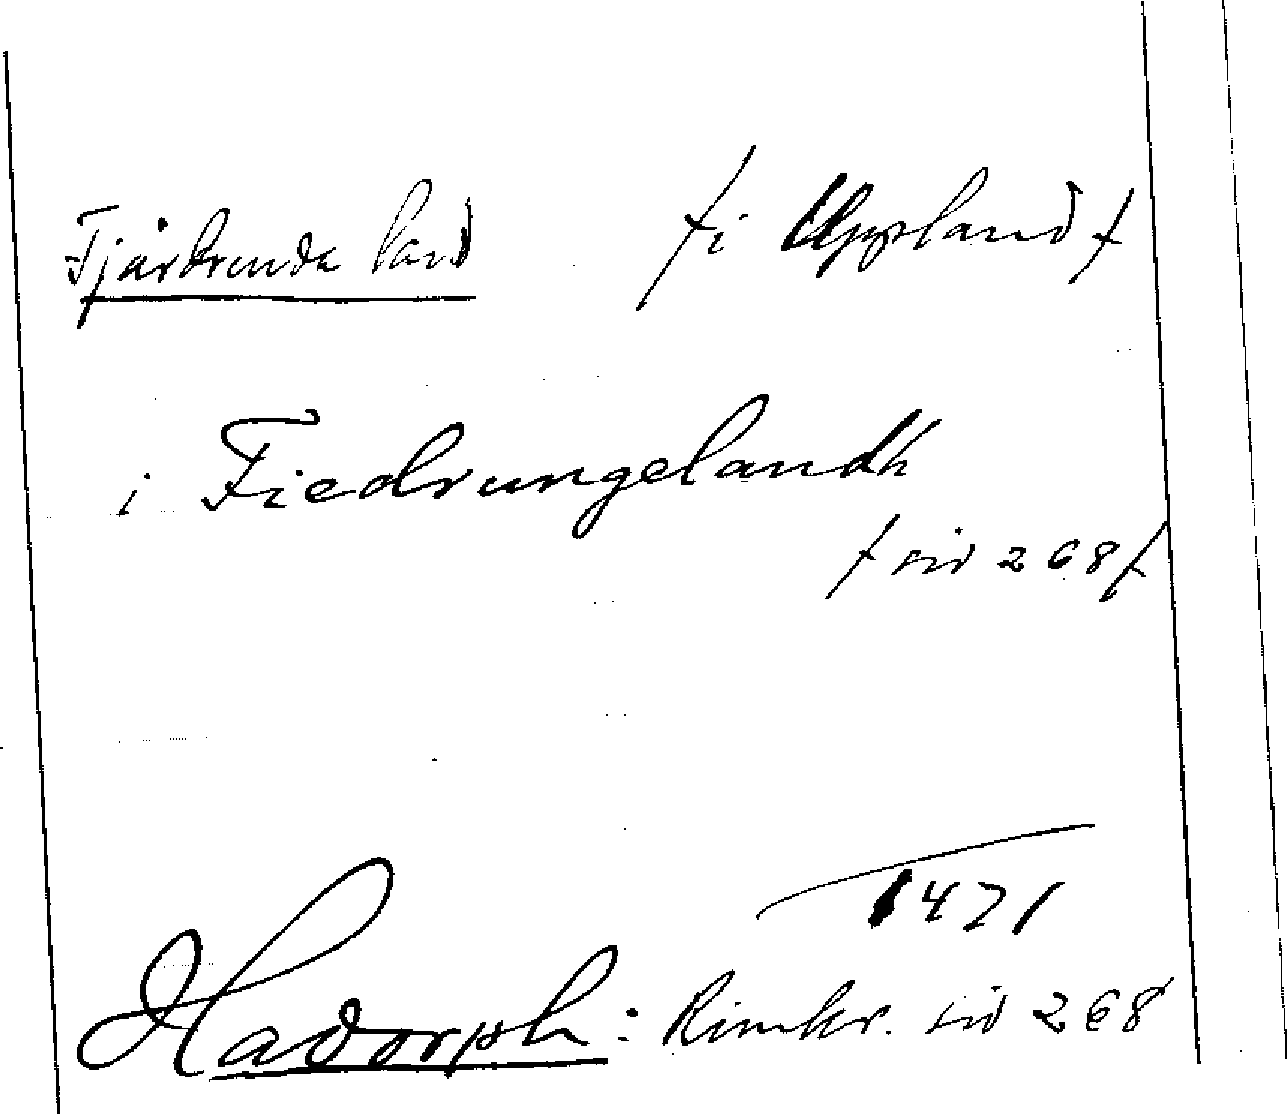 Fjärdrunda land /i Uppland/
i Fiedrungelandh
/sid 268/
1471
Hadorph: Rimkr. sid 268